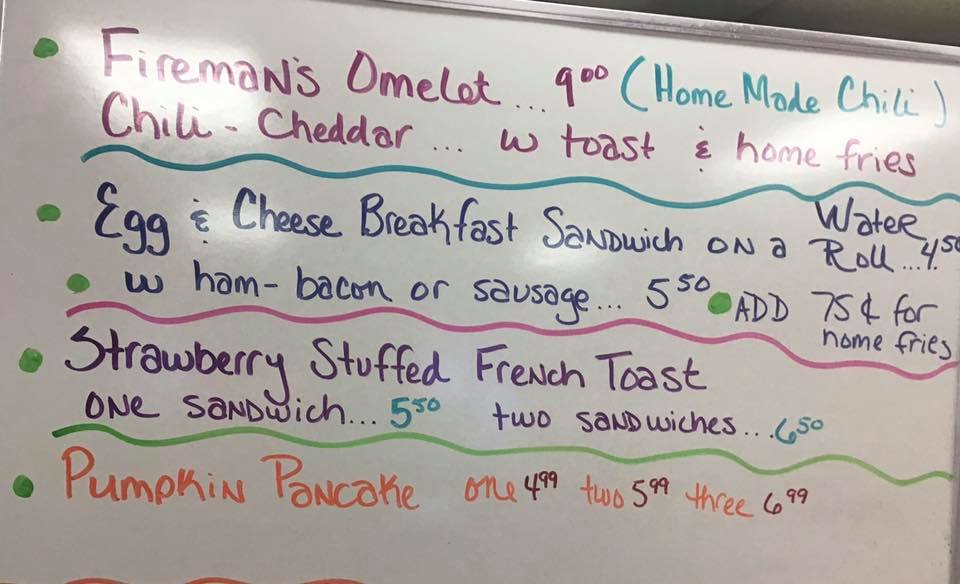 Fireman's Omelet... 9⁰⁰ (Home Made Chili)
Chili - Cheddar... w toast & home fries
Egg & Cheese Breakfast Sandwich on a Water Roll...4.50
w ham- bacon or sausage... 5⁵⁰ ADD 75¢ for home fries
Strawberry Stuffed French Toast
one sandwich...5⁵⁰ two sandwiches...6⁵⁰
Pumpkin Pancake one 4⁹⁹ two 5⁹⁹ three 6⁹⁹